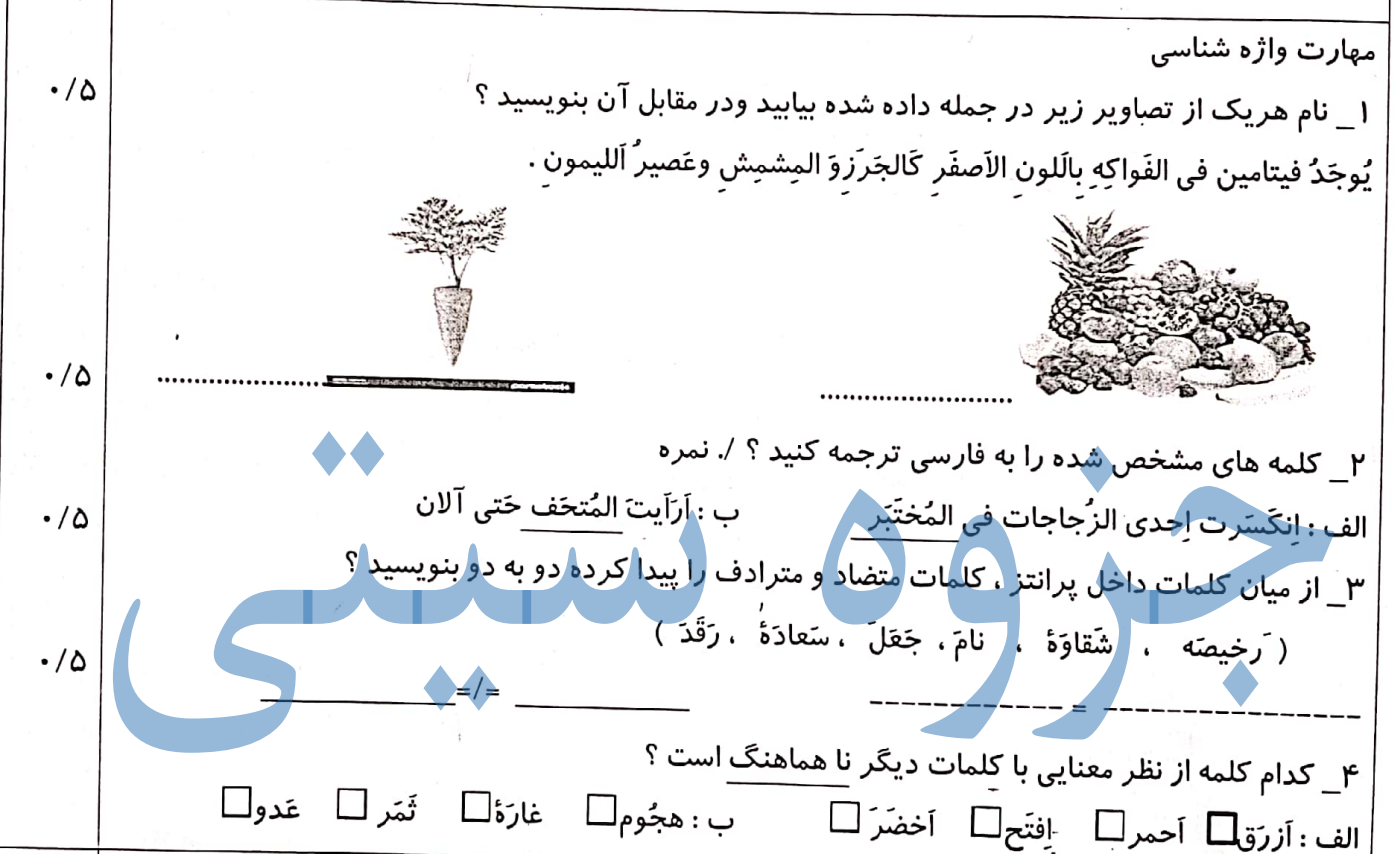 مهارت واژه شناسی
۰/۵
۱_ نام هریک از تصاویر زیر در جمله داده شده بیابید ودر مقابل آن بنویسید ؟
یُوجَدُ فیتامین فی الفَواکِهِ بِالَلونِ الاَصفَرِ کَالجَرَزِوَ المِشمِشِ وعَصیرُ اَللیمونِ .
........................ ........................
۰/۵
۲_ کلمه های مشخص شده را به فارسی ترجمه کنید ؟ /. نمره
الف : اِنکَسَرت اِحدی الزُجاجات فی المُختَبَر ب : اَرَاَیتَ المُتحَف حَتی آلان
۰/۵
۳_ از میان کلمات داخل پرانتز ، کلمات متضاد و مترادف را پیدا کرده دو به دو بنویسید ؟
( رَخیصَه ، شَقاوَة ، نامَ ، جَعَلَ ، سَعادَةُ ، رَقَدَ )
۰/۵
---------------- = ------------- ____________ =/= ____________
۴_ کدام کلمه از نظر معنایی با کلمات دیگر نا هماهنگ است ؟
الف : اَزرَق□ اَحمر□ اِفتَح□ اَخضَرَ □ ب : هجُوم□ غارَة□ ثَمَر □ عَدو□
جزوه سیتی